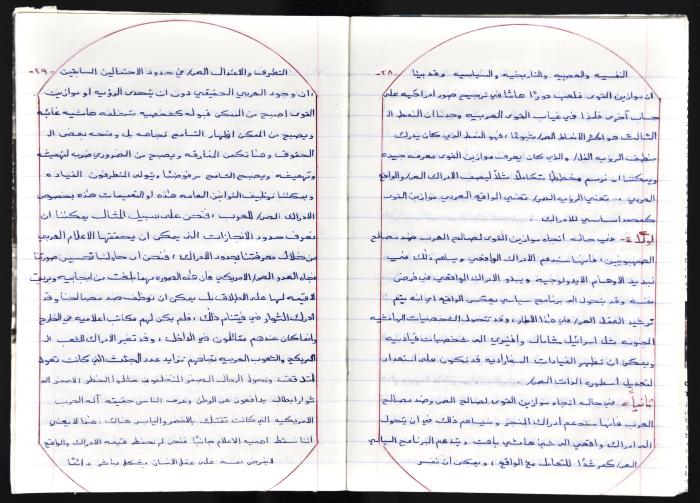 -٢٨- النفسيه والعصبيه والتاريخيه والسياسيه وقد بينا
ان موازين القوى تلعب دورًا هامًا في ترجيح صور ادراكيه على
حساب أخرى فلذا في غياب القوى العربيه وجدنا ان النمط الـ
الثالث هو اكثر الانماط الص/ شيوعًا، فهو النمط الذي كان يدرك
منطق الرؤيه الغا/ والذي كان يعرف موازين القوى معرفه جيده
ويمكننا ان نرسم مخططًا متكاملًا مثلًا ليصف الادراك الص/ والواقع
العربي ... تعني الرؤيه الص/ تعني الواقع العربي موازين القوى
كمحدد اساسي للادراك:
اولًا:- في حاله اتجاه موازين القوى لصالح العرب ضد مصالح
الصهيونيين، فإنها ستدعم الادراك الواقعي ويساهم ذلك في
تبديد الاوهام الايدولوجيه ويبدو الادراك الواقعي في فرض
نفسه وقد يتحول الى برنامج سياسي يعكس الواقع اي انه يتم
ترشيد العقل الص/ في هذا الاطار، وقد تتحول الشخصيات الهامشيه
المجنونه مثل اسرائيل شاحاك وافنيري الى شخصيات قياديه
ويمكن ان تظهر القيادات السفارديه قد تكون على استعداد
لتعديل اسطوره الذات الص/
ثانيًا:- في حاله اتجاه موازين القوى لصالح الص/ وضد مصالح
العرب فإنها ستدعم أدراك المنحز وساهم ذلك في ان يتحول
الى ادراك واقعي الى شي هامشي باهت ويدعم البرنامج السياسي
الص/ كمرشدًا للتعامل مع الواقع، ويمكن ان نفسر
-٢٩- التطرف والاعتدال الص/ في حدود الاحتمالين السابقين
،ان وجود العربي الحقيقي دون ان يتحدى الرؤيه او موازين
القوى اصبح من الممكن قبوله كشخصيه متخلفه هامشيه غائبه
ويصبح من الممكن اظهار التسامح تجاهه بل ومنحه بعض الـ
الحقوق وهنا تكمن المفارقه ويصبح من الضروري ضربه لتهميشه
وتهميشه ويصبح التسامح مرفوضًا ويتولى المتطرفون القياده
ويمكننا توظيف القوانين العامه هذه او التعميمات هذه بخصوص
الادراك الص/ للعرب، فنحن على سبيل المثال يمكننا ان
نعرف حدود الانجازات التي يمكن ان يحققها الاعلام العربي
من خلال معرفتنا بحدود الادراك، فنحن ان حاولنا تحسين صورتنا
تجاه العدو الص/ الامريكي فإن هذه الصوره مهما بلغت من ايجابيه وبريق
لا قيمه لها على الاطلاق بل يمكن ان توظف ضد مصالحنا وقد
ادرك الثوار في فيتنام ذلك، فلم يكن لهم مكاتب اعلاميه في الخارج
وانما كان عندهم مقاتلون في الداخل، وقد تغير الادراك الشعب الـ
الامريكي والشعوب الغربيه تجاههم بتزايد عدد الجثث التي كانت تعود
وتحول الرجال الصفر المتخلفون ممثلوا الخطر الاصفر الى
ثوار ابطال يدافعون عن الوطن وعرف الناس حقيقه آله الحرب
الامريكيه التي كانت تفتك بالاخضر واليابس هناك، هذا لا يعني
اننا نسقط اهميه الاعلام جانبًا فنحن لم نحفظ قيمه الادراك والواقع
لا يفرض نفسه على عقل الانسان بشكل مباشر دائمًا